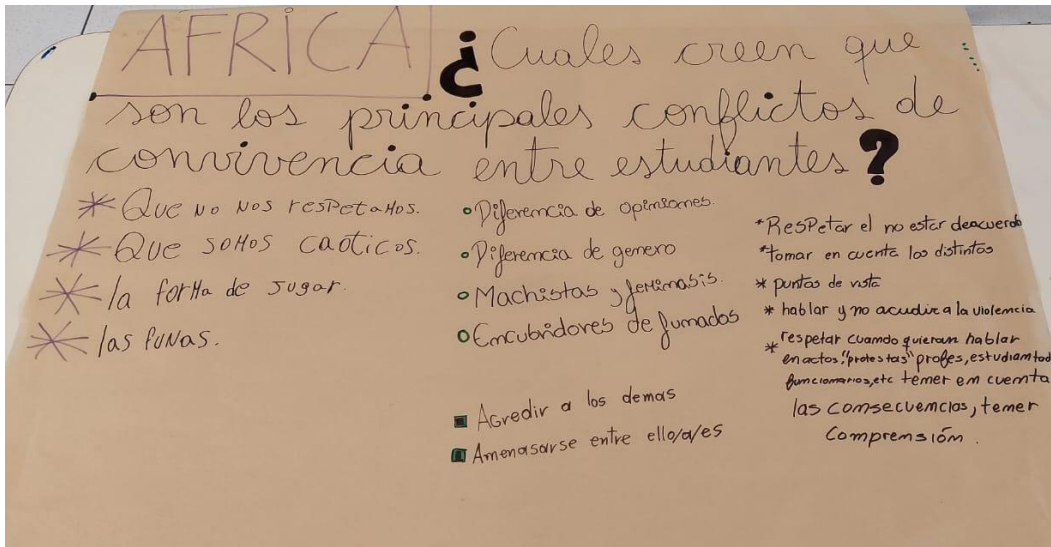 AFRICA ¿Cuales creen que
son los principales conflictos de
convivencia entre estudiantes?
* Que no nos respetamos.
* Que somos caoticos.
* la forma de jugar.
* las funas.
• Diferencia de opiniones.
• Diferencia de genero
• Machistas y
• Encubridores de fumados
▪ Agredir a los demas
▪ Amenasarse entre ello/a/es
* Respetar el no estar deacuerdo
* tomar en cuenta los distintos
* puntos de vista
* hablar y no acudir a la violencia
* respetar cuando quieran hablar
en actos, "protestas" profes,
funcionarios, etc tener en cuenta
las consecuencias, tener
comprensión.